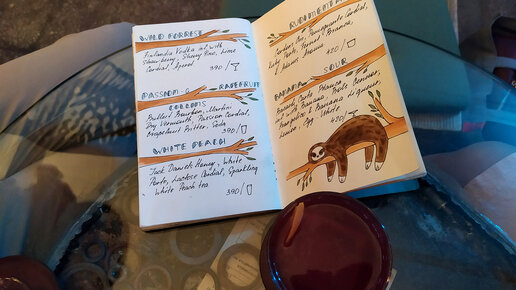 WILD FORREST
Finlandia Vodka inf. with
Strawberry, Sherry Fino, Lime
Cordial, Aperol 390/
PASSION & GRAPEFRUIT
COLLINS
Bulleit Bourbon, Martini
Dry Vermouth, Passion Cordial,
Grapefruit Bitter, Soda
390/
WHITE PEACH
Jack Daniels Honey, White
Porto, Lactose Cordial, Sparkling
White Peach tea
390/
Cordial,
Ruby Porto, Fernet Branca,
420/
BANANA SOUR
Bacardi Carta Blanca
with Banana,
& Banana Liqueur,
Lemon, Egg White